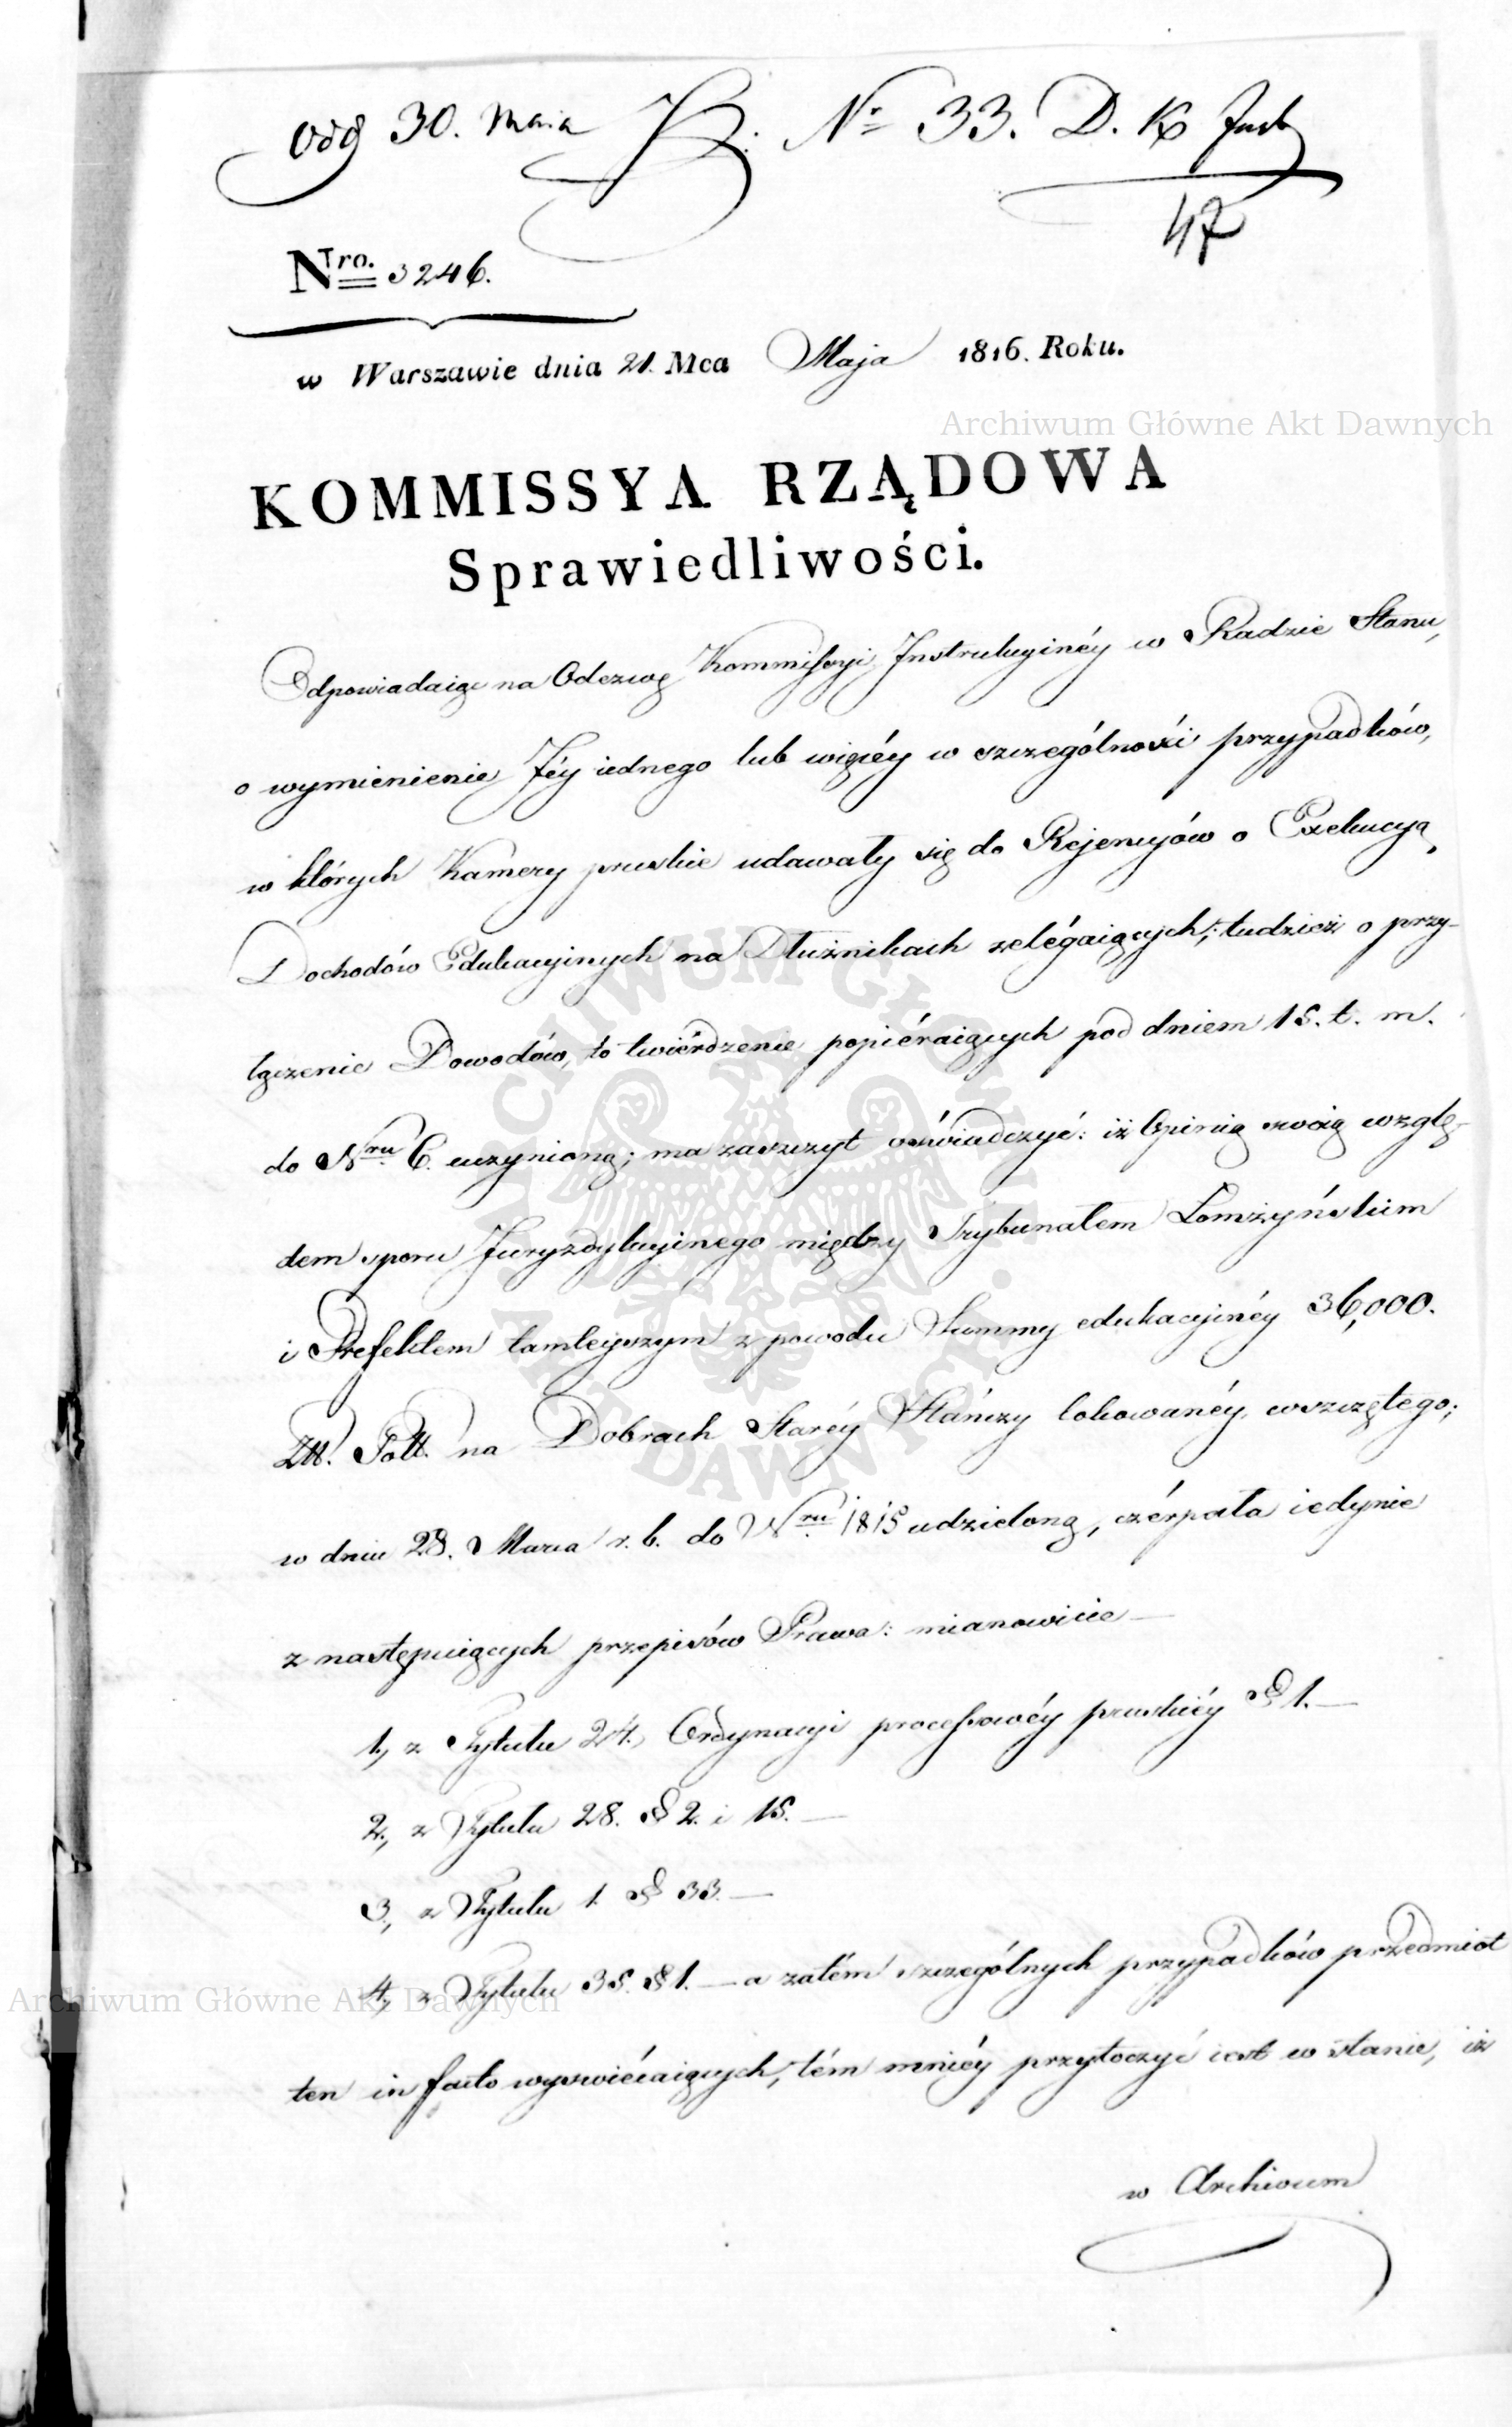 odd 30. Maia № 33. D. K Instr
47
Nro. 3246.
w Warszawie dnia 21. Mca Maja 1816. Roku.
Archiwum Główne Akt Dawnych
KOMMISSYA RZĄDOWA
Sprawiedliwości.
Odpowiadaiąc na Odezwę Kommissyi Instrukcyinéy w Radzie Stanu,
o wymienienie Jéy iednego lub więcéy w szczególności przypadków,
w których Kamery pruskie udawały się do Rejencyów o Exekucyą
Dochodów Edukacyinych na Dłużnikach zalégaiących; tudzież o przy-
łączenie Dowodów, to twiérdzenie popiéraiących pod dniem 15. t. m.
do Nru 6. uczynioną; ma zaszczyt oświadczyć: iż Opinią swoią wzglę-
dem sporu Juryzdykcyinego między Trybunałem Łomżyńskim
i Prefektem tamteyszym z powodu Summy edukacyinéy 36,000.
Złł. Poll. na Dobrach Staréy Hańczy lokowanéy, wszczętego;
w dniu 28. Marca r. b. do Nru 1815 udzieloną, czérpała iedynie
z następuiących przepisów Prawa: mianowicie —
1, z Tytułu 24. Ordynacyi processowéy pruskiéy § 1. —
2, z Tytułu 28. § 2. i 15. —
3, z Tytułu 1. § 33. —
4, z Tytułu 35. § 1. — a zatém szczególnych przypadków przedmiot
Archiwum Główne Akt Dawnych
ten in facto wyswiécaiących, tém mniéy przytoczyć iest w stanie, iż
w Archivum
ARCHIWUM GŁÓWNE AKT DAWNYCH